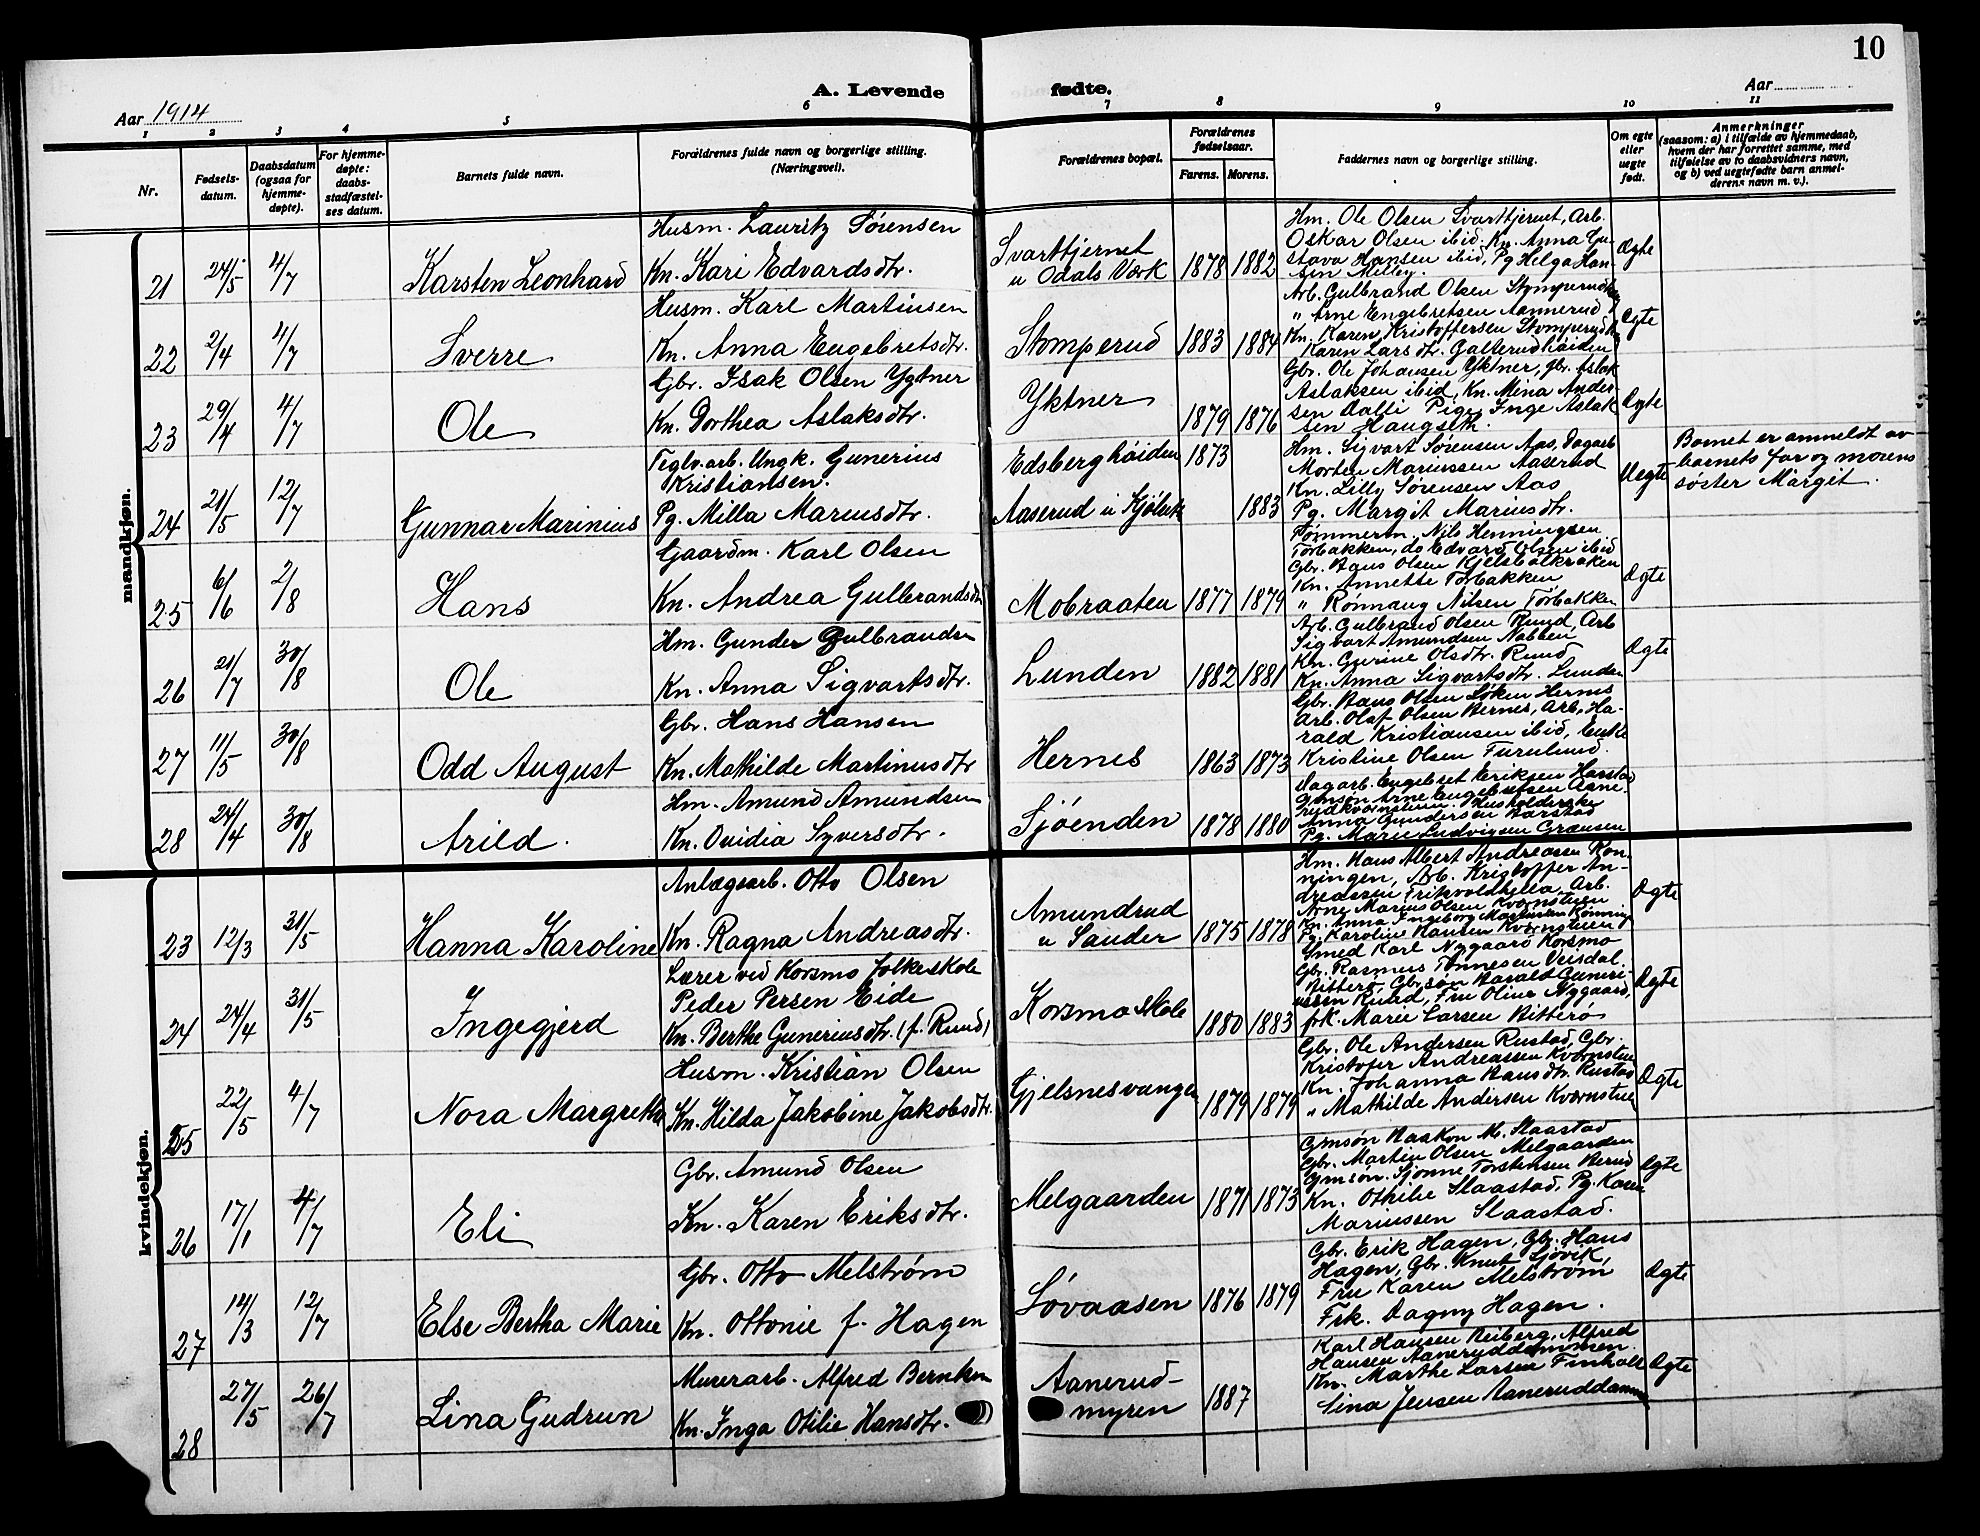 10
A. Levende fødte.
Aar 1914
Aar
1 2 3 4 5 6 7 8 9 10 11
Nr.
Fødsels-
datum.
Daabsdatum
(ogsaa for
hjemme-
døpte).
For hjemme-
døpte:
daabs-
stadfæstel-
ses datum.
Barnets fulde navn.
Forældrenes fulde navn og borgerlige stilling.
(Næringsvei).
Forældrenes bopæl.
Forældrenes
fødselsaar.
Farens. Morens.
Faddernes navn og borgerlige stilling.
Om egte
eller
uegte
født.
Anmerkninger
(saasom: a) i tilfælde av hjemmedaab,
hvem der har forrettet samme, med
tilføielse av to daabsvidners navn,
og b) ved uegtefødte barn anmel-
derens navn m. v.).
mandkjøn.
21 24/5 4/7 Karsten Leonhard
Husm. Lauritz Sørensen
Kn. Kari Edvardsdtr.
Svarttjernet
u Odals Værk
1878 1882
Hm. Ole Olsen Svarttjernet, Arb.
Oskar Olsen ibid. Kn. Anna Gu-
stava Hansen ibid, Pg Helga Han-
sen Milley.
Ægte
22 2/4 4/7 Sverre
Husm. Karl Martinsen
Kn. Anna Engebretsdtr.
Stomperud
1883 1884
Arb. Gulbrand Olsen Stomperud
" Arne Engebretsen Aannerud
Kn. Karen Kristoffersen Stomperud
Karen Larsdtr. Galterudhøiden
Ægte
23 29/4 4/7 Ole
Gbr. Isak Olsen Ygtner
Kn. Dorthea Aslaksdtr.
Yktner
1879 1876
Gbr. Ole Johansen Yktner, Gbr. Aslak
Aslaksen ibid, Kn. Mina Ander-
sen Dalti Pige Inge Aslak
sen Haugseth.
Ægte
24 21/5 12/7 Gunnar Marinius
Teglv.arb. Ungk. Gunerius
Kristiansen.
Pg. Milla Mariusdtr.
Edsberghøiden 1873
Aaserud u Kjølerk 1883
Hm. Sigvart Sørensen Aas, Dagarb
Morten Mariussen Aaserud
Kn. Lilly Sørensen Aas
Pg. Margit Mariusdtr.
Uegte
Barnet er anmeldt av
barnets far og morens
søster Margit.
25 6/6 2/8 Hans
Gaardm. Karl Olsen
Kn. Andrea Gulbrandsdtr
Mobraaten
1877 1879
Tømmerm. Nils Henningsen
Torbakken, do Edvard Olsen ibid
Gbr. Hans Olsen Kjelsbølkroken
Kn. Annette Torbakken
" Rønnaug Nilsen Torbakken
Ægte
26 21/7 30/8 Ole
Hm. Gunder Gulbrandsen
Kn. Anna Sigvartsdtr.
Lunden
1882 1881
Arb. Gulbrand Olsen Ruud, Arb
Sigvart Amundsen Nabben
Kn. Gurine Olsdtr. Ruud
Kn. Anna Sigvartsdtr. Lunden
Ægte
27 11/5 30/8 Odd August
Gbr. Hans Hansen
Kn. Mathilde Martinusdtr
Hernes
1863 1873
Gbr. Hans Olsen Løken Hernes
Arb. Olaf Olsen Hernes, Arb, Ha-
rald Kristiansen ibid, Enke
Kristine Olsen Furulund.
28 24/4 30/8 Arild.
Hm. Amund Amundsen
Kn. Ovidia Syversdtr.
Sjøenden
1878 1880
Dagarb. Engebret Eriksen Harstad
Gmsøn Arne Engebretsen Aane-
rudkvernstuen. Husholderske
Anna Gundersen Harstad
Pg. Marie Ludvigsen Grænsen
kvindekjøn.
23 12/3 31/5 Hanna Karoline
Anlægsarb. Otto Olsen
Kn. Ragna Andreasdtr.
Amundrud
u Sander
1875 1878
Hm. Hans Albert Andreassen Røn-
ningen, Arb. Kristoffer An-
dreassen, Arb.
Arne Marius Olsen Kvernstuen
Kn. Anna Ingeborg
Pg. Karoline Hansen Kvernstuen
Ægte
24 24/4 31/5 Ingegjerd
Lærer ved Korsmo folkeskole
Peder Persen Eide
Kn. Berthe Guneriusdtr. (f. Ruud)
Korsmo Skole
1880 1883
Smed Karl Nygaard Korsmo
Gbr. Rasmus Tønnesen Ousdal.
Hitterø. Gbr.søn Harald Guneri-
ussen Ruud, Fru Oline Nygaard,
frk. Marie Larsen Hitterø
Ægte
25 22/5 4/7 Nora Margrethe
Husm. Kristian Olsen
Kn. Hilda Jakobine Jakobsdtr.
Gjelsnesvangen
1879 1879
Gbr. Ole Andersen Rustad, Gbr.
Kristofer Andreassen Kvernstuen
Kn. Johanna Hansdtr. Rustad
" Mathilde Andersen Kvernstuen
Ægte
26 17/1 4/7 Eli
Gbr. Amund Olsen
Kn. Karen Eriksdtr.
Melgaarden
1871 1873
Gmsøn Haakon M. Slaastad
Gbr. Martin Olsen Melgaarden
Gmsøn. Sjønne Torstensen Berud
Kn. Othilie Slaastad, Pg. Karen
Mariussen Slaastad.
Ægte
27 14/3 12/7 Else Bertha Marie
Gbr. Otto Melstrøm
Kn. Ottonie f. Hagen
Løvaasen
1876 1879
Gbr. Erik Hagen, Gbr. Hans
Hagen, Gbr. Knut Sjøvik,
Fru Karen Melstrøm
Frk. Dagny Hagen.
Ægte
28 27/5 26/7 Lina Gudrun
Murerarb. Alfred Berntsen
Kn. Inga Otilie Hansdtr.
Aanerud-
myren
1887
Karl Hansen Neiberg, Alfred
Hansen Aaneruddammen
Kn. Marthe Larsen Finholt
Lina Jensen Aaneruddammen
Ægte